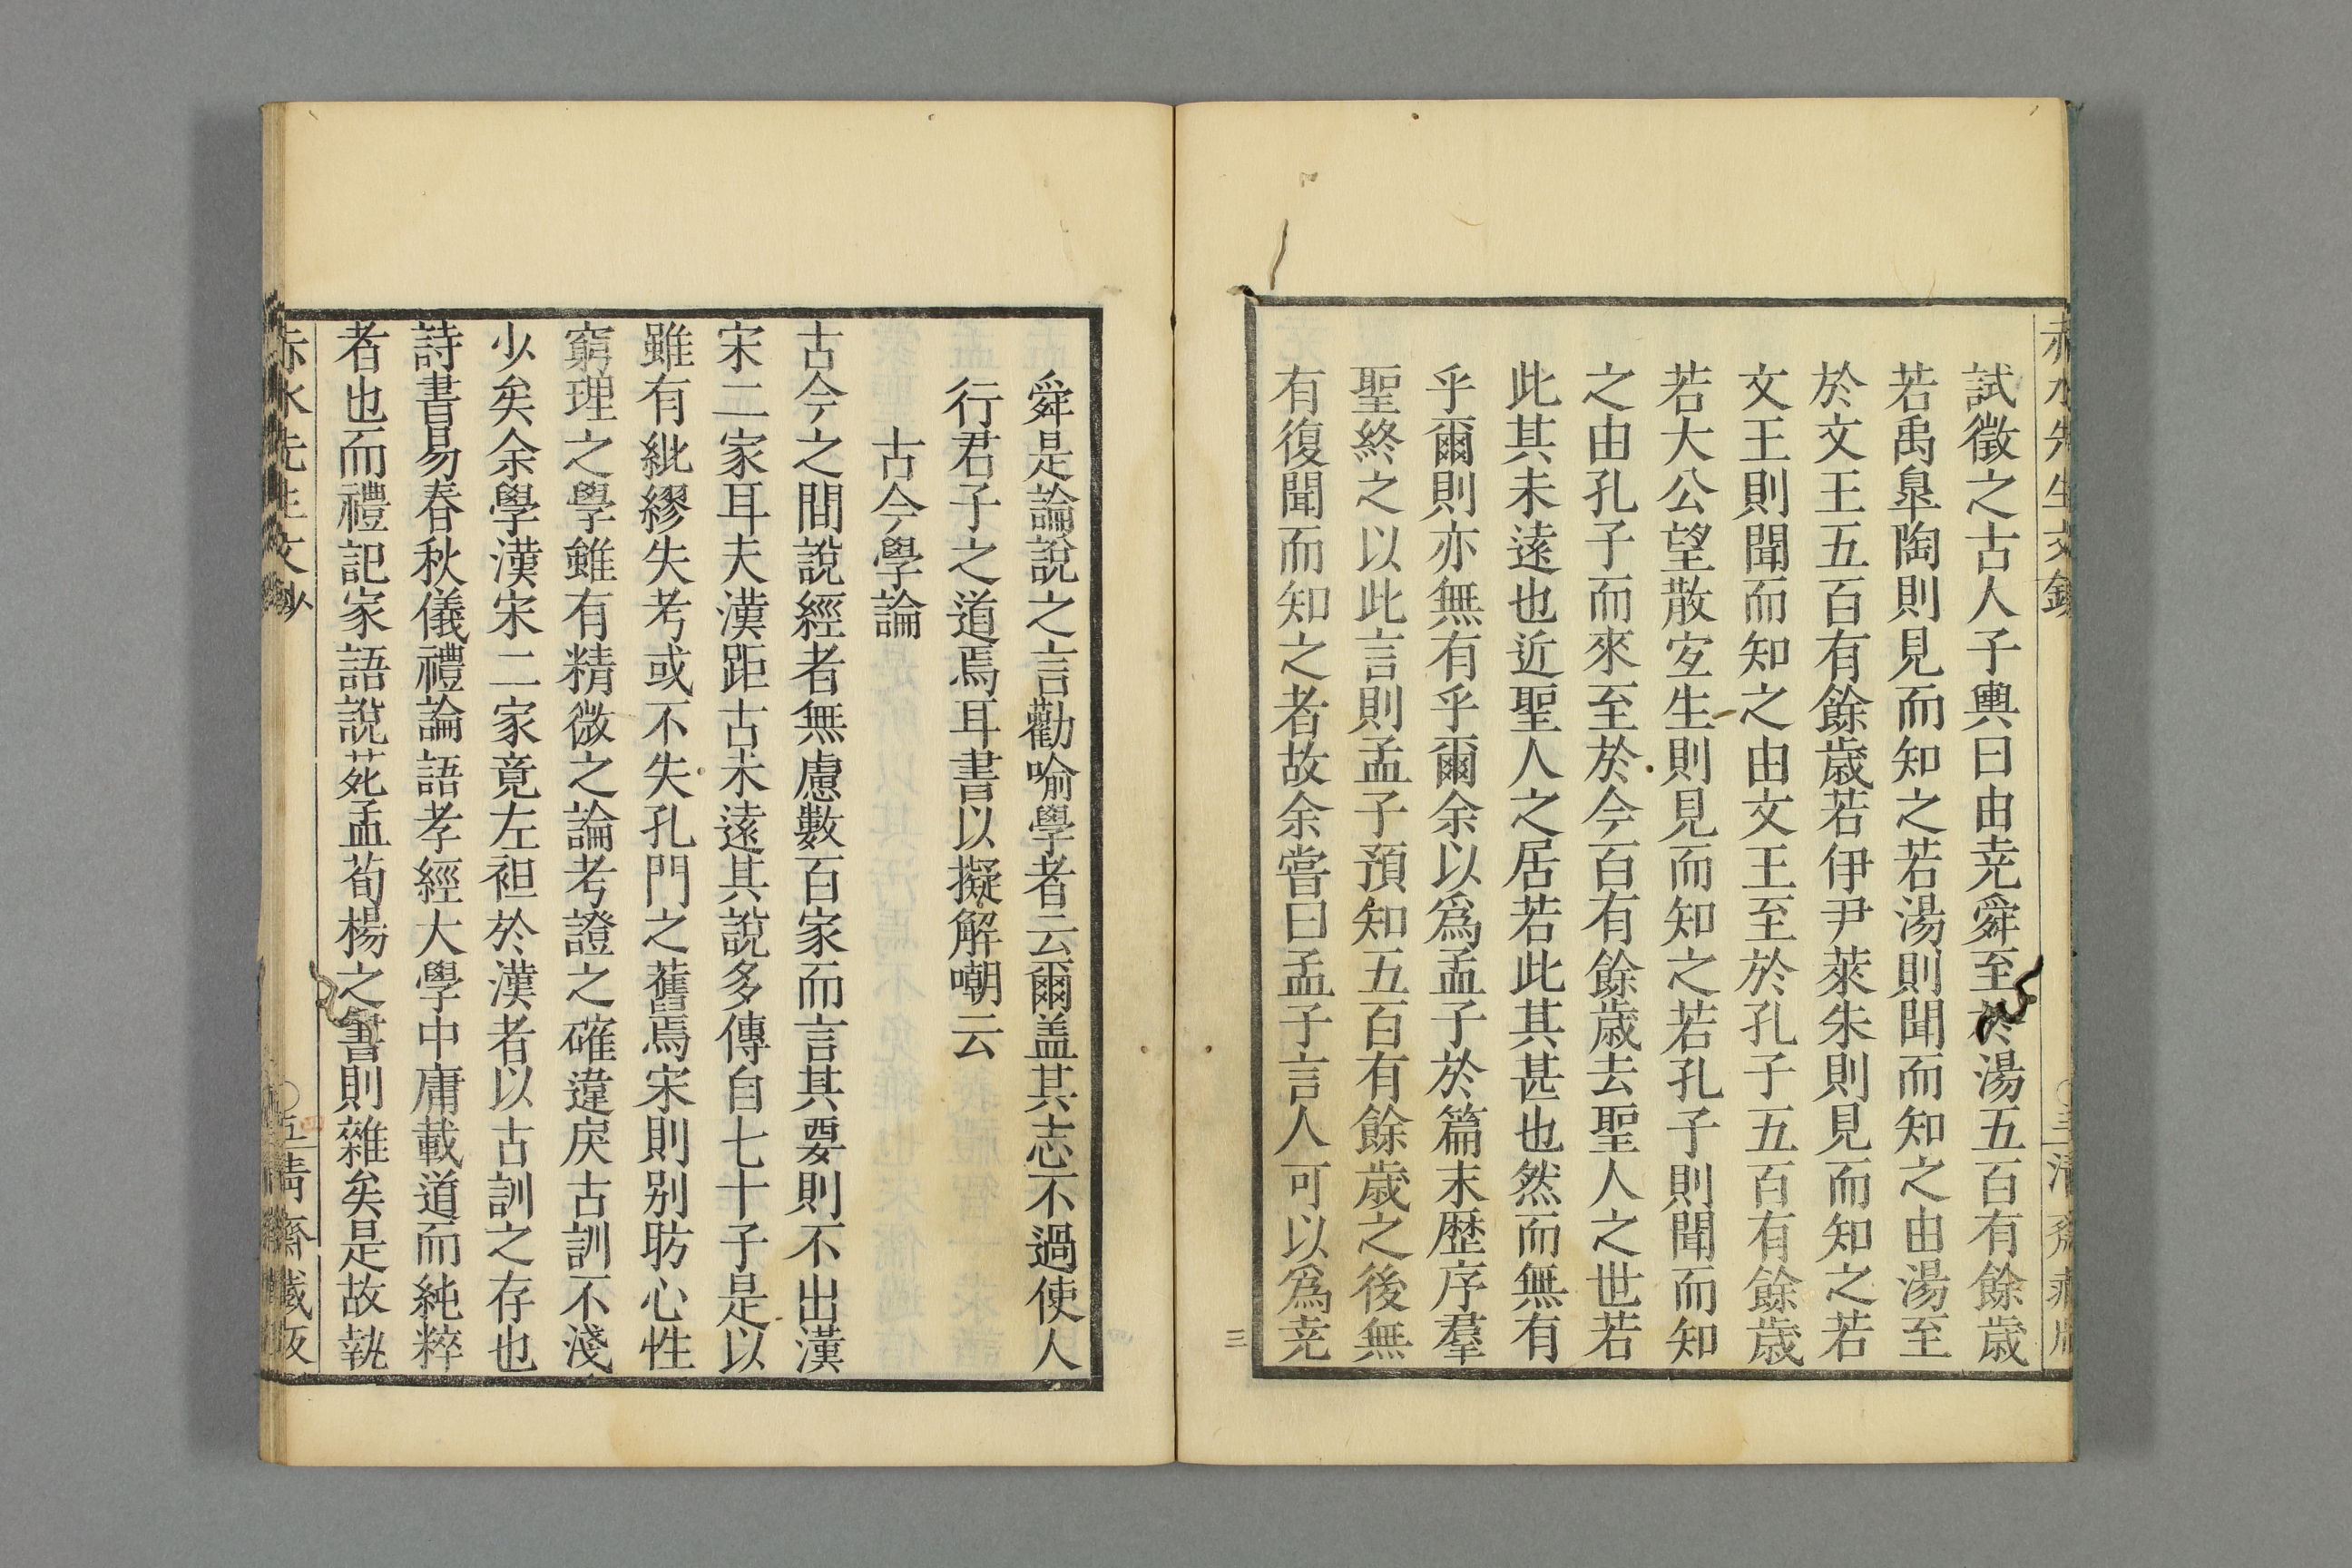 試徵之古人子輿曰由尭舜至於湯五百有餘歳
若禹臯陶則見而知之若湯則聞而知之由湯至
於文王五百有餘歳若伊尹萊朱則見而知之若
文王則聞而知之由文王至於孔子五百有餘歳
若大公望散宜生則見而知之若孔子則聞而知
之由孔子而來至於今百有餘歳去聖人之世若
此其未遠也近聖人之居若此其甚也然而無有
乎爾則亦無有乎爾余以爲孟子於篇末歴序羣
聖終之以此言則孟子預知五百有餘歳之後無
有復聞而知之者故余嘗曰孟子言人可以爲尭
三
舜是論說之言勸喻學者云爾盖其志不過使人
行君子之道焉耳書以擬解嘲云
古今學論
古今之間說經者無慮數百家而言其要則不出漢
宋二家耳夫漢距古未遠其說多傳自七十子是以
雖有紕繆失考或不失孔門之舊焉宋則别昉心性
窮理之學雖有精微之論考證之確違戾古訓不淺
少矣余學漢宋二家竟左袒於漢者以古訓之存也
詩書易春秋儀禮論語孝經大學中庸載道而純粹
者也而禮記家語說苑孟荀楊之書則雜矣是故執